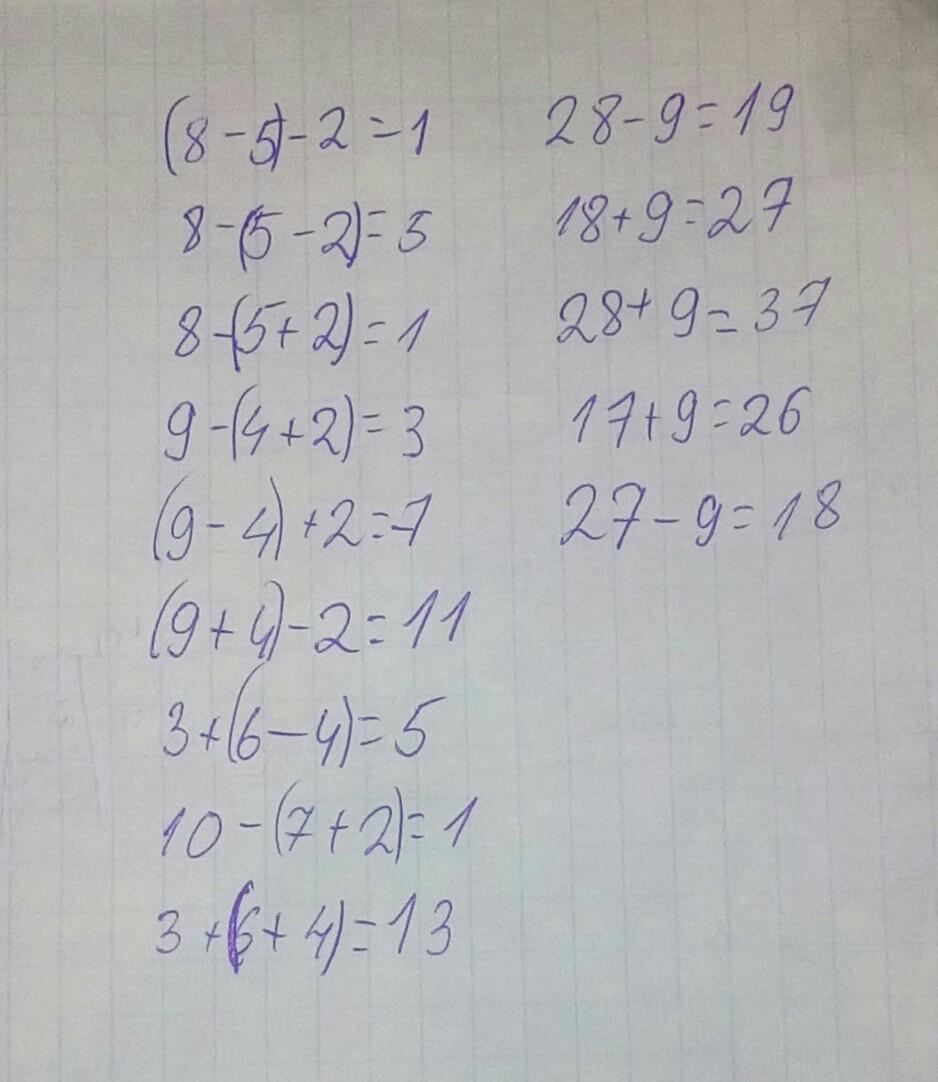 (8-5)-2=1
8-(5-2)=5
8-(5+2)=1
9-(4+2)=3
(9-4)+2=7
(9+4)-2=11
3+(6-4)=5
10-(7+2)=1
3+(6+4)=13
28-9=19
18+9=27
28+9=37
17+9=26
27-9=18